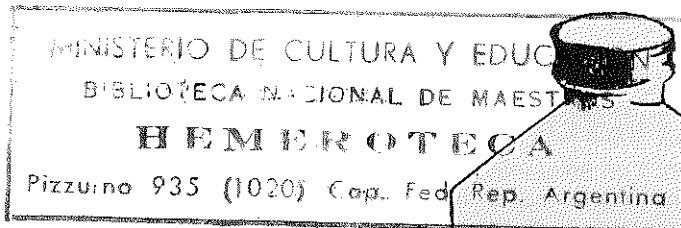 MINISTERIO DE CULTURA Y EDUC N
BIBLIOTECA NACIONAL DE MAEST S
HEMEROTECA
Pizzurno 935 (1020) Cap. Fed Rep. Argentina